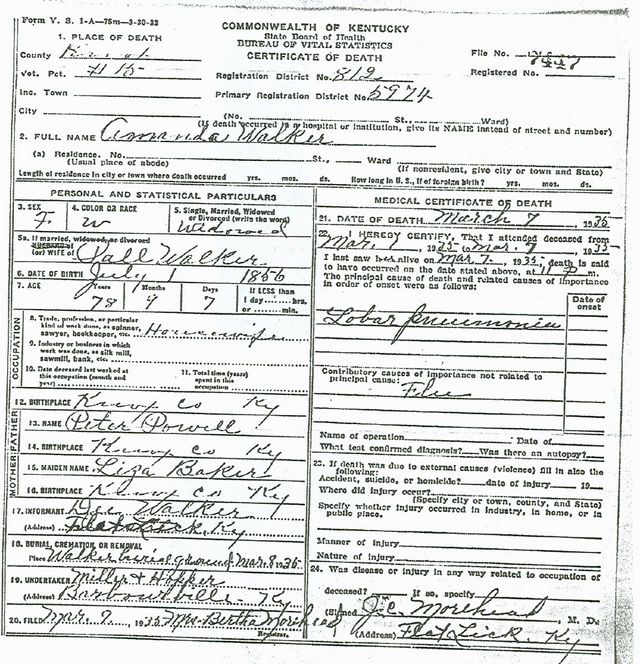 Form V. S. 1-A—75m—3-30-32
COMMONWEALTH OF KENTUCKY
State Board of Health
BUREAU OF VITAL STATISTICS
CERTIFICATE OF DEATH
1. PLACE OF DEATH
County
Vot. Pct. #15
Inc. Town
City
Registration District No. 812
Primary Registration District No. 5974
File No.
Registered No.
(No. St., Ward)
(If death occurred in a hospital or institution, give its NAME instead of street and number)
2. FULL NAME Amanda Walker
(a) Residence. No. St., Ward
(Usual place of abode) (If nonresident, give city or town and State)
Length of residence in city or town where death occurred yrs. mos. ds. How long in U. S., if of foreign birth? yrs. mos. ds.
PERSONAL AND STATISTICAL PARTICULARS
3. SEX 4. COLOR OR RACE 5. Single, Married, Widowed or Divorced (write the word)
F W Widowed
5a. If married, widowed, or divorced
HUSBAND of
(or) WIFE of Walker
6. DATE OF BIRTH July 1 1856
7. AGE Years Months Days If LESS than
78 7 1 day hrs.
or min.
OCCUPATION
8. Trade, profession, or particular
kind of work done, as spinner,
sawyer, bookkeeper, etc. Housewife
9. Industry or business in which
work was done, as silk mill,
sawmill, bank, etc.
10. Date deceased last worked at
this occupation (month and
year)
11. Total time (years)
spent in this
occupation
12. BIRTHPLACE Knox Co Ky
FATHER
13. NAME Peter Powell
14. BIRTHPLACE Knox Co Ky
MOTHER
15. MAIDEN NAME Liza Baker
16. BIRTHPLACE Knox Co Ky
17. INFORMANT Walker
(Address) Flat Lick, Ky
18. BURIAL, CREMATION, OR REMOVAL
Place Walker burial ground Mar. 8 1935
19. UNDERTAKER Miller & Hopper
(Address) Barbourville Ky
20. FILED Mar. 9, 1935 Mrs. Bertha Morehead
Registrar.
MEDICAL CERTIFICATE OF DEATH
21. DATE OF DEATH March 7 1935
22. I HEREBY CERTIFY, That I attended deceased from
Mar. 1935 to Mar. 1935
I last saw her alive on Mar 7 1935, death is said
to have occurred on the date stated above, at 11 P m.
The principal cause of death and related causes of importance
in order of onset were as follows:
Date of onset
Lobar pneumonia
Contributory causes of importance not related to
principal cause:
Flu
Name of operation Date of
What test confirmed diagnosis? Was there an autopsy?
23. If death was due to external causes (violence) fill in also the
following:
Accident, suicide, or homicide? date of injury 19
Where did injury occur?
(Specify city or town, county, and State)
Specify whether injury occurred in industry, in home, or in
public place.
Manner of injury
Nature of injury
24. Was disease or injury in any way related to occupation of
deceased? If so, specify
(Signed) J. C. Morehead, M. D.
(Address) Flat Lick, Ky